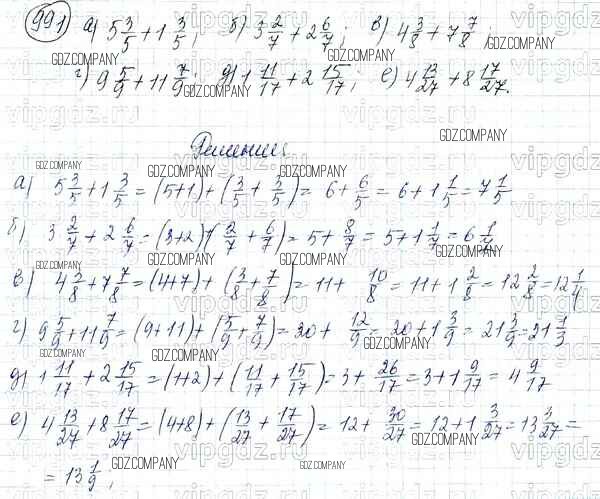 991 а) 5 3/5 + 1 3/5; б) 3 2/7 + 2 6/7; в) 4 3/8 + 7 7/8;
г) 9 5/9 + 11 7/9; д) 1 11/17 + 2 15/17; е) 4 13/27 + 8 17/27.
Решение
а) 5 3/5 + 1 3/5 = (5+1) + (3/5 + 3/5) = 6 + 6/5 = 6 + 1 1/5 = 7 1/5
б) 3 2/7 + 2 6/7 = (3+2) + (2/7 + 6/7) = 5 + 8/7 = 5 + 1 1/7 = 6 1/7
в) 4 3/8 + 7 7/8 = (4+7) + (3/8 + 7/8) = 11 + 10/8 = 11 + 1 2/8 = 12 2/8 = 12 1/4
г) 9 5/9 + 11 7/9 = (9+11) + (5/9 + 7/9) = 20 + 12/9 = 20 + 1 3/9 = 21 3/9 = 21 1/3
д) 1 11/17 + 2 15/17 = (1+2) + (11/17 + 15/17) = 3 + 26/17 = 3 + 1 9/17 = 4 9/17
е) 4 13/27 + 8 17/27 = (4+8) + (13/27 + 17/27) = 12 + 30/27 = 12 + 1 3/27 = 13 3/27 =
= 13 1/9;
GDZ.COMPANY
vipgdz.com